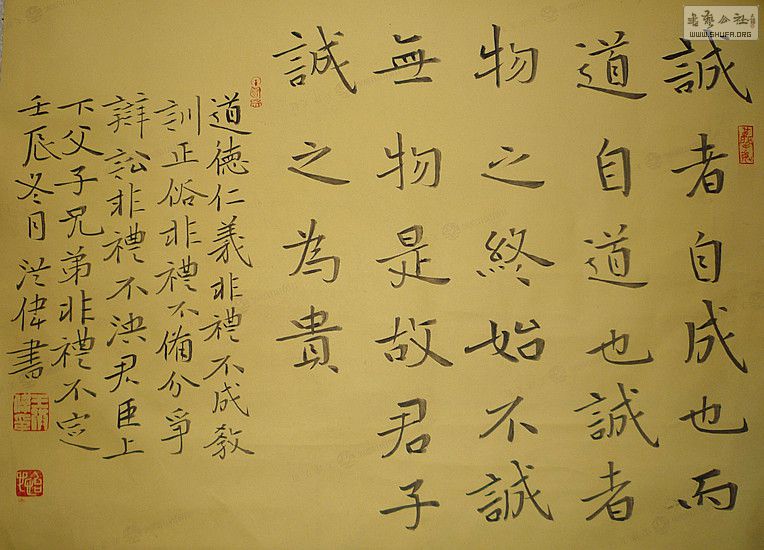 誠者自成也而
道自道也誠者
物之終始不誠
無物是故君子
誠之為貴
道德仁義非禮不成教
訓正俗非禮不備分爭
辯訟非禮不決君臣上
下父子兄弟非禮不定
壬辰冬月洪偉書
書藝公社
WWW.SHUFA.ORG